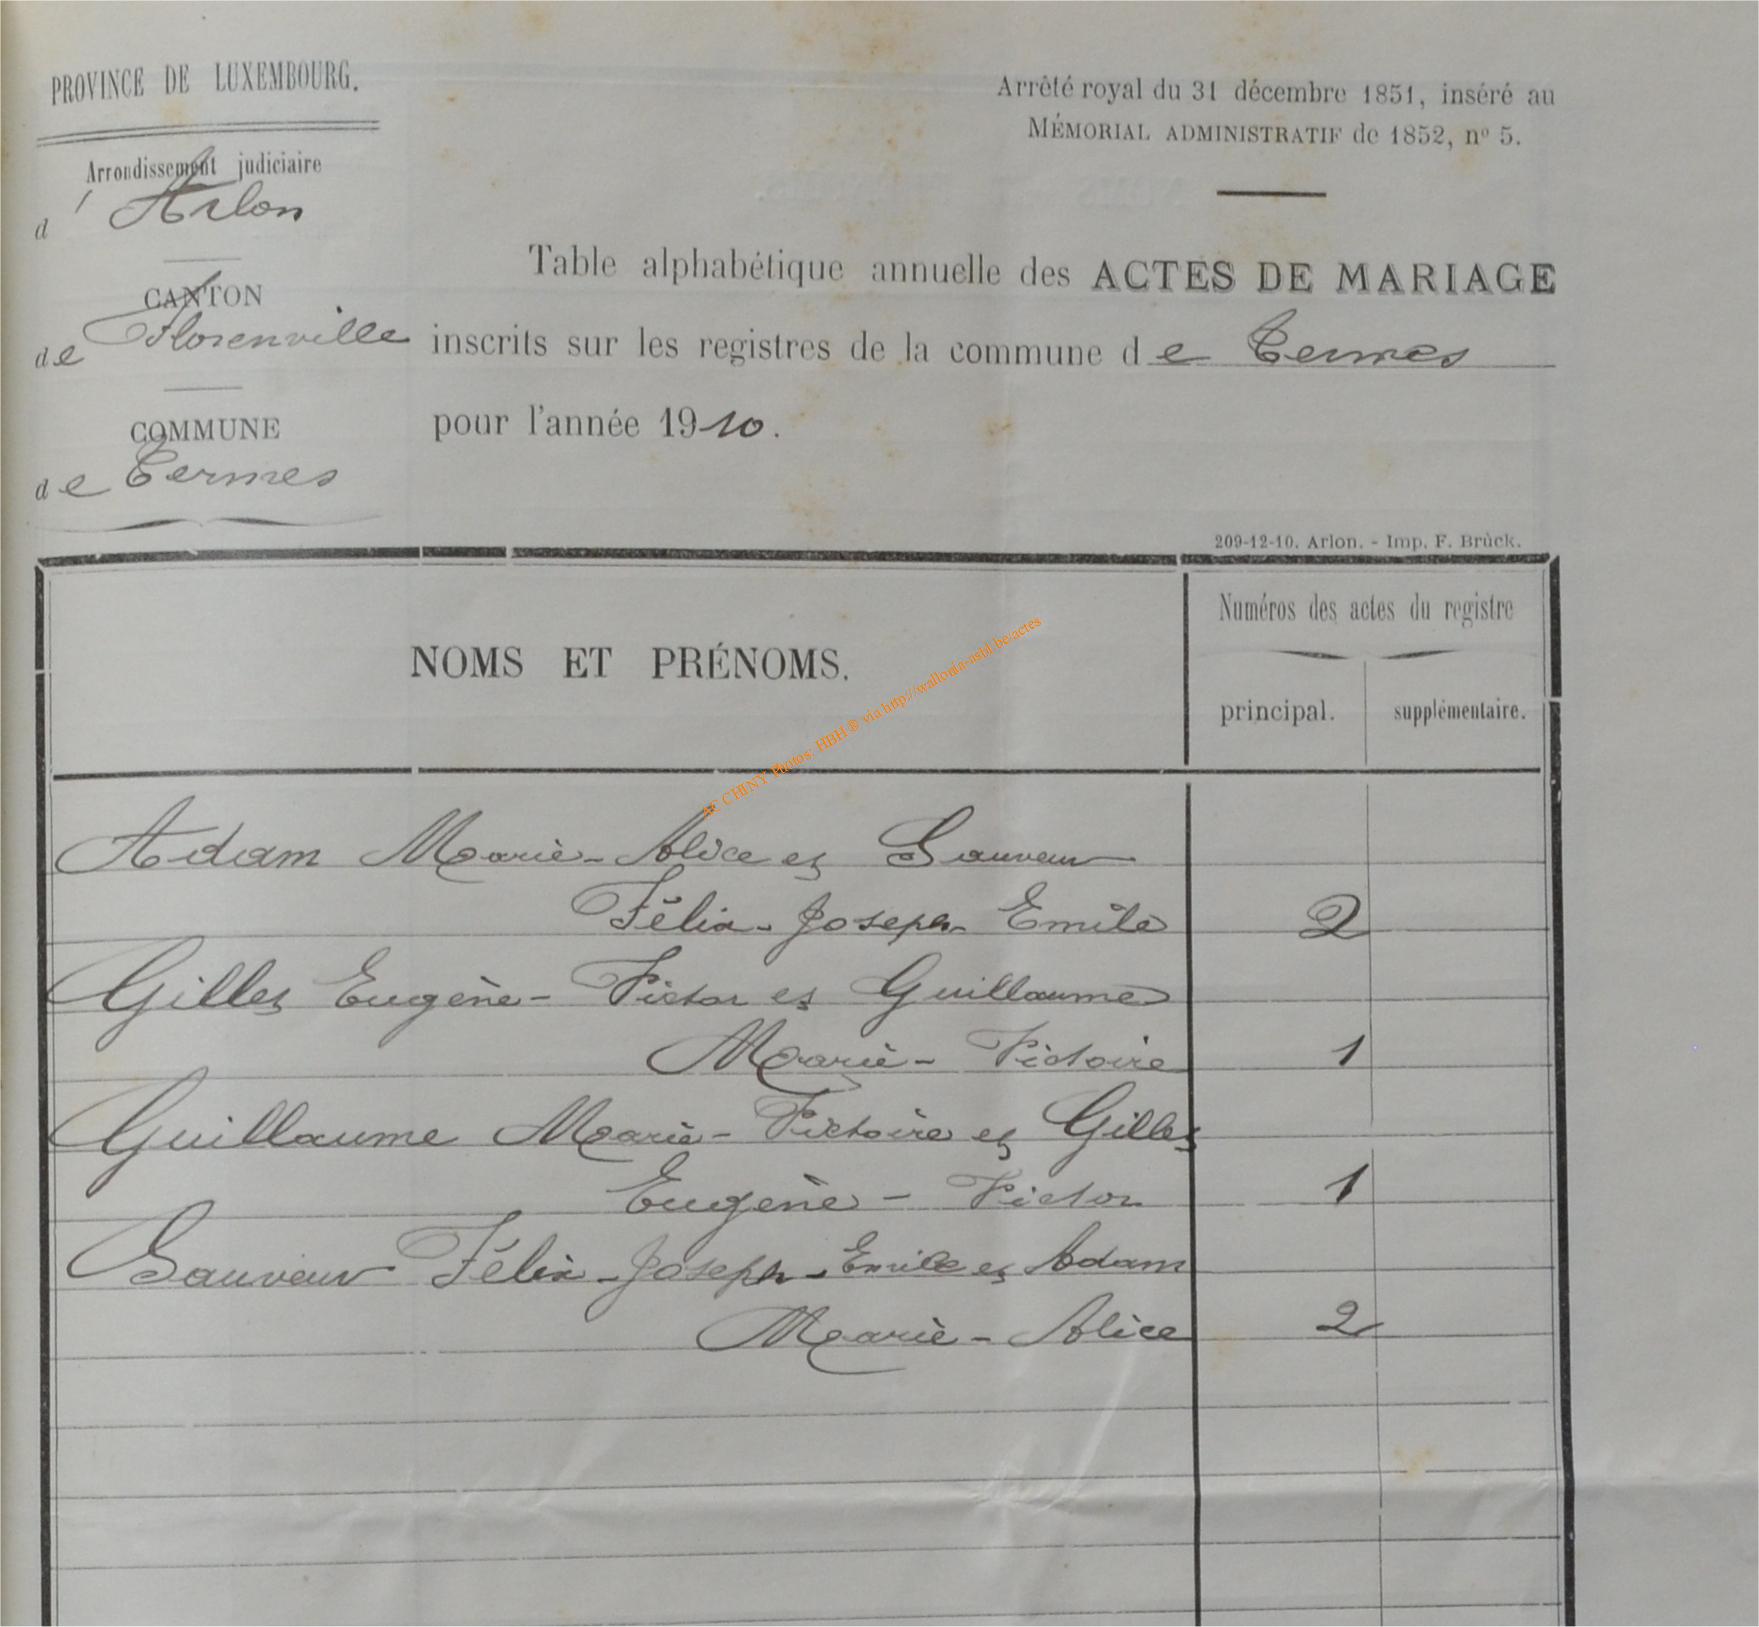 PROVINCE DE LUXEMBOURG.
Arrondissement judiciaire
d'Arlon
CANTON
de Florenville
COMMUNE
de Termes
Arrêté royal du 31 décembre 1851, inséré au
MÉMORIAL ADMINISTRATIF de 1852, nº 5.
Table alphabétique annuelle des ACTES DE MARIAGE
inscrits sur les registres de la commune de Termes
pour l'année 1910.
209-12-10. Arlon. - Imp. F. Brück.
NOMS ET PRÉNOMS.
Numéros des actes du registre
principal. supplémentaire.
AC CHINY Photos: HBH ® via http://wallonia-asbl.be/actes
Adam Marie-Alice et Sauveur
Félix-Joseph-Emile 2
Gilles Eugène-Victor et Guillaume
Marie-Victoire 1
Guillaume Marie-Victoire et Gilles
Eugène-Victor 1
Sauveur Félix-Joseph-Emile et Adam
Marie-Alice 2